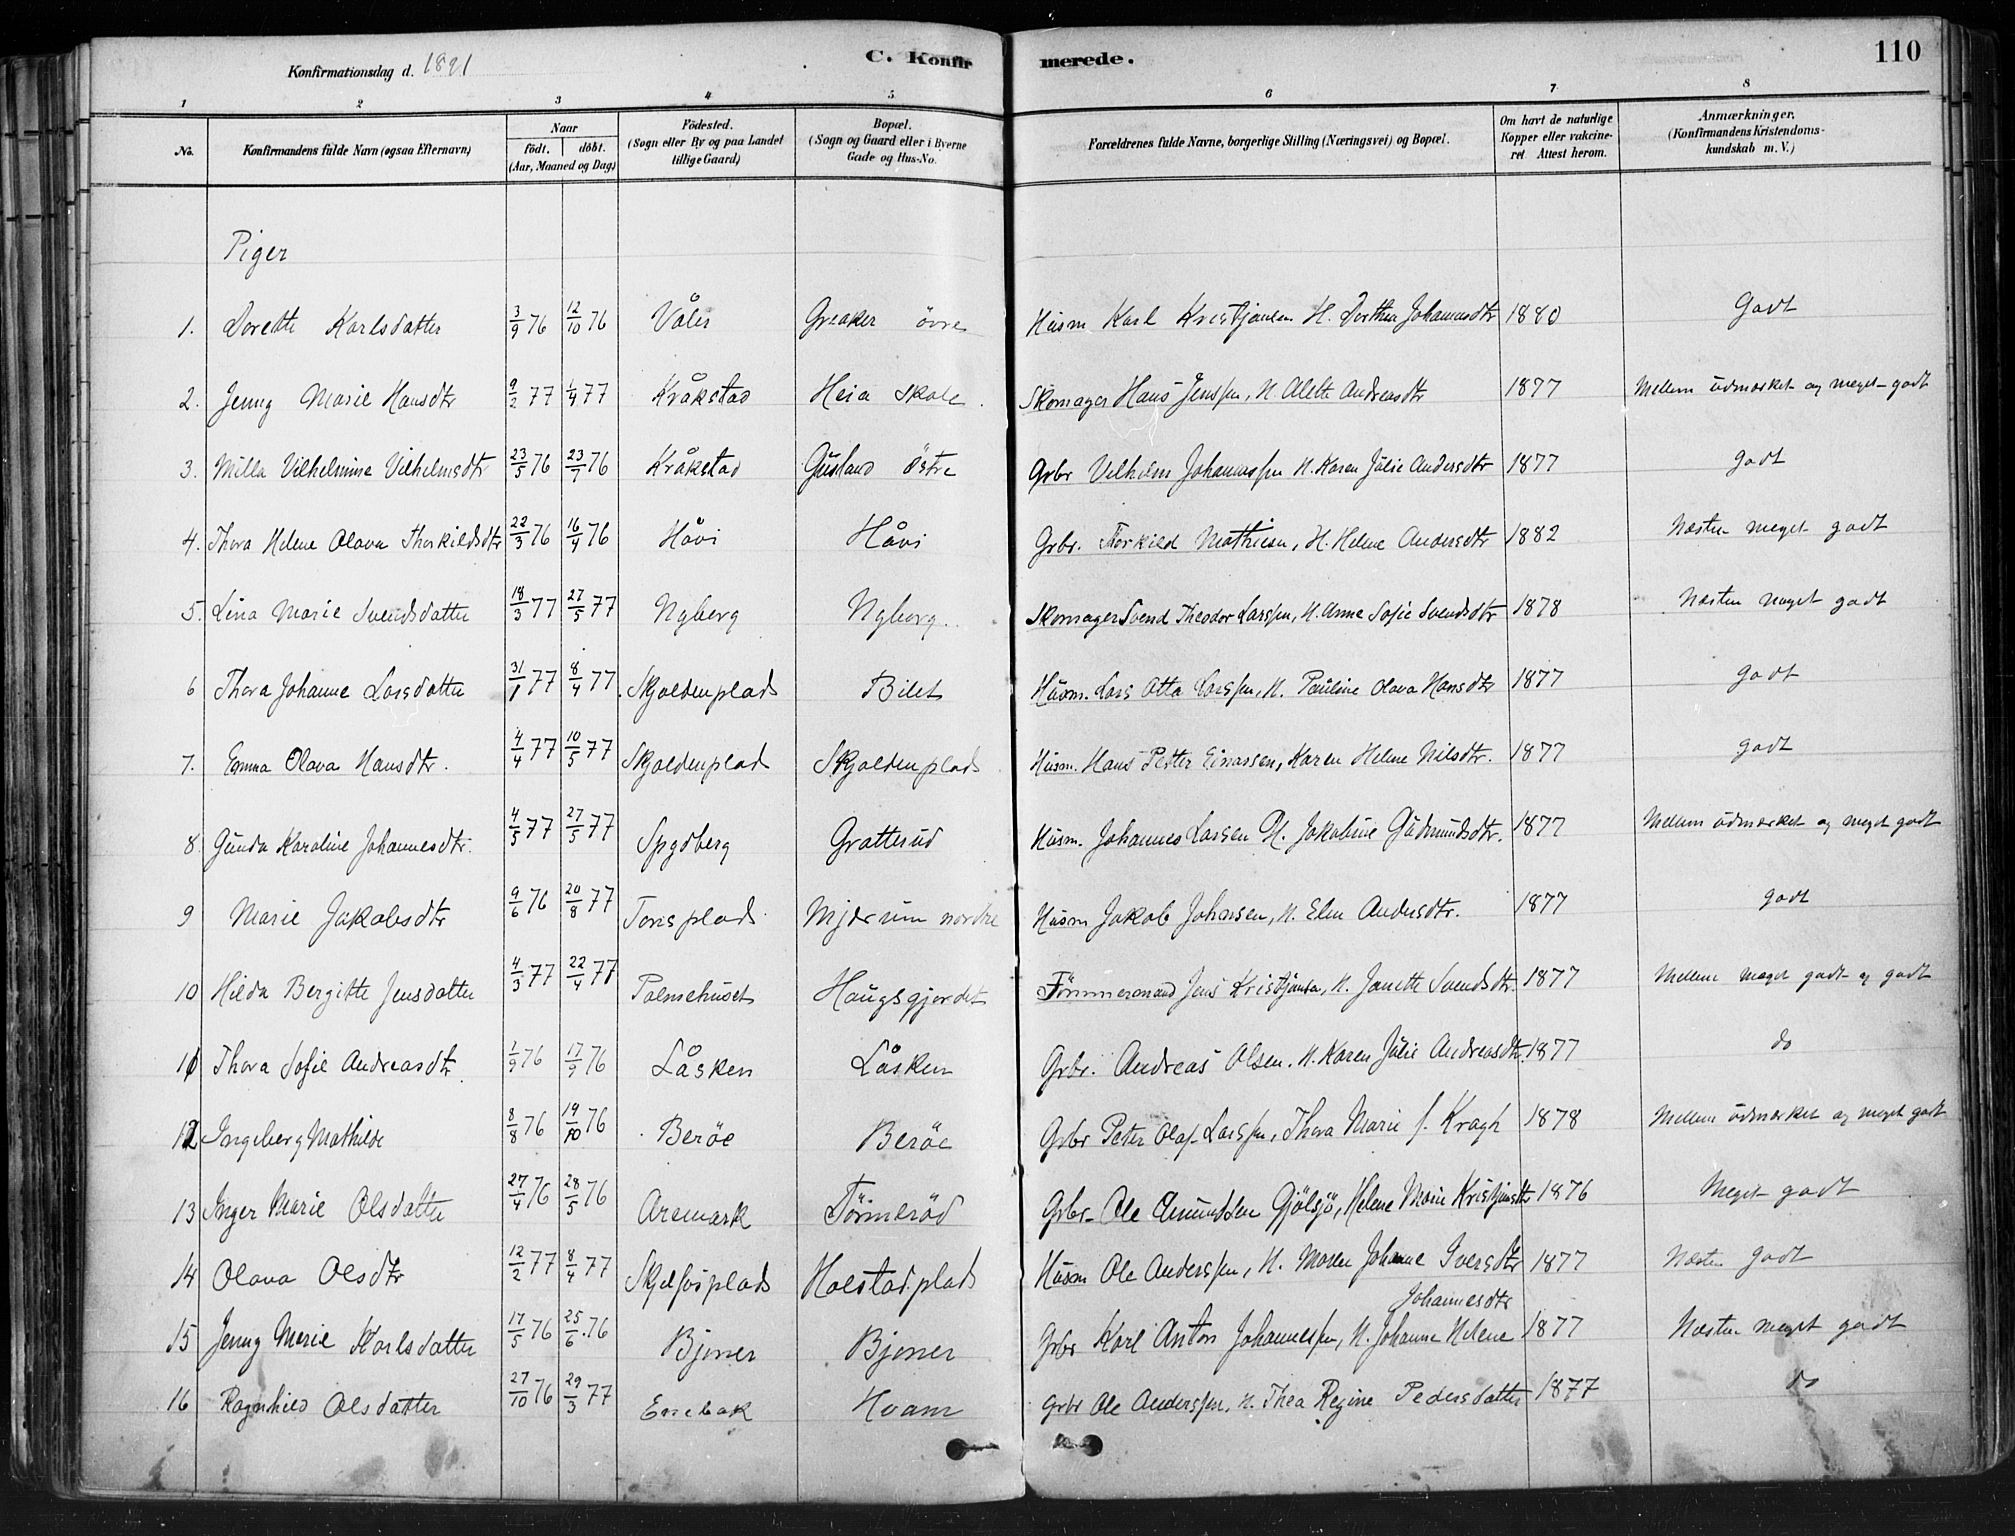 Konfirmationsdag d. 1891
C. Konfirmerede.
110
1 2 3 4 5 6 7 8
No. Konfirmandens fulde Navn (ogsaa Efternavn) Naar födt. döbt. (Aar, Maaned og Dag) Födested. (Sogn eller By og paa Landet tillige Gaard) Bopæl. (Sogn og Gaard eller i Byerne Gade og Hus-No. Forældrenes fulde Navne, borgerlige Stilling (Næringsvei) og Bopæl. Om havt de naturlige Kopper eller vakcineret Attest herom. Anmærkninger. (Konfirmandens Kristendomskundskab m. V.)
Piger
1. Dorette Karlsdatter 3/9 76 12/10 76 Våler Greaker övre Husm Karl Kristjansen H. Dorthea Johannesdtr 1880 Godt
2. Jenny Marie Hansdtr 9/2 77 1/4 77 Kråkstad Heia Skole Skomager Hans Jenssen, H. Alette Andreasdtr 1877 Mellem udmærket og meget godt
3. Milla Vilhelmine Vilhelmsdtr 23/5 76 23/7 76 Kråkstad Gusland Östre Grbr Vilhelm Johannessen H. Karen Julie Andersdtr 1877 godt
4. Thora Helene Olava Thorkildsdtr 22/3 76 16/4 76 Håvi Håvi Grbr. Thorkild Mathisen, H. Helene Andersdtr 1882 Næsten meget godt
5. Lina Marie Svendsdatter 18/3 77 27/5 77 Nyberg Nyborg Skomager Svend Theodor Larssen, H. Anne Sofie Svendsdtr 1878 Næsten meget godt
6 Thora Johanne Larsdatter 31/1 77 8/4 77 Skjoldenplads Bilet Husm. Lars Otto Larssen, H. Pauline Olava Hansdtr 1877 godt
7. Emma Olava Hansdtr. 4/4 77 10/5 77 Skjoldenplads Skjoldenplads Husm. Hans Petter Einarssen, Karen Helene Nilsdtr. 1877 godt
8. Gunda Karoline Johannesdtr. 4/5 77 27/5 77 Spydberg Gratterud Husm. Johannes Larsen H. Jakobine Gudmundsdtr. 1877 Mellem udmærket og meget godt
9 Marie Jakobsdtr 9/6 76 20/8 77 Torisplads Mjærum nordre Husm Jakob Johnsen, H. Elen Andersdtr. 1877 godt
10 Hilda Bergitte Jensdatter 4/3 77 22/4 77 Palmehuset Haugsgjordet Tömmermand Jens Kristjansen, H. Janette Svendsdtr. 1877 Mellem meget godt og godt
11 Thora Sofie Andreasdtr 1/9 76 17/9 76 Låsken Låsken Grbr. Andreas Olsen. H. Karen Julie Andreasdtr. 1877 do
12 Ingeborg Mathilde 8/8 76 19/10 76 Beröe Beröe Grbr Peter Olaf Larssen, Thora Marie f. Kragh 1878 Mellem udmærket og meget godt
13 Inger Marie Olsdatter 27/4 76 28/5 76 Aremark Törmeröd Grbr. Ole Amundsen Gjölsjö, Helene Marie Kristjansdtr 1876 Meget godt
14 Olava Olsdtr 12/2 77 8/4 77 Skjelfosplads Holstadplads Husm Ole Anderssen, H. Maren Johanne Iversdtr 1877 Næsten godt
Johannesdtr
15 Jenny Marie Karlsdatter 17/5 76 25/6 .76 Bjoner Bjoner Grbr Karl Anton Johannessen, H. Johanne Helene 1877 Næsten meget godt
16 Ragnhild Olsdatter 27/10 76 29/3 77 Enebak Hvam Grbr Ole Anderssen, H. Thea Regine Pedersdatter 1877 do